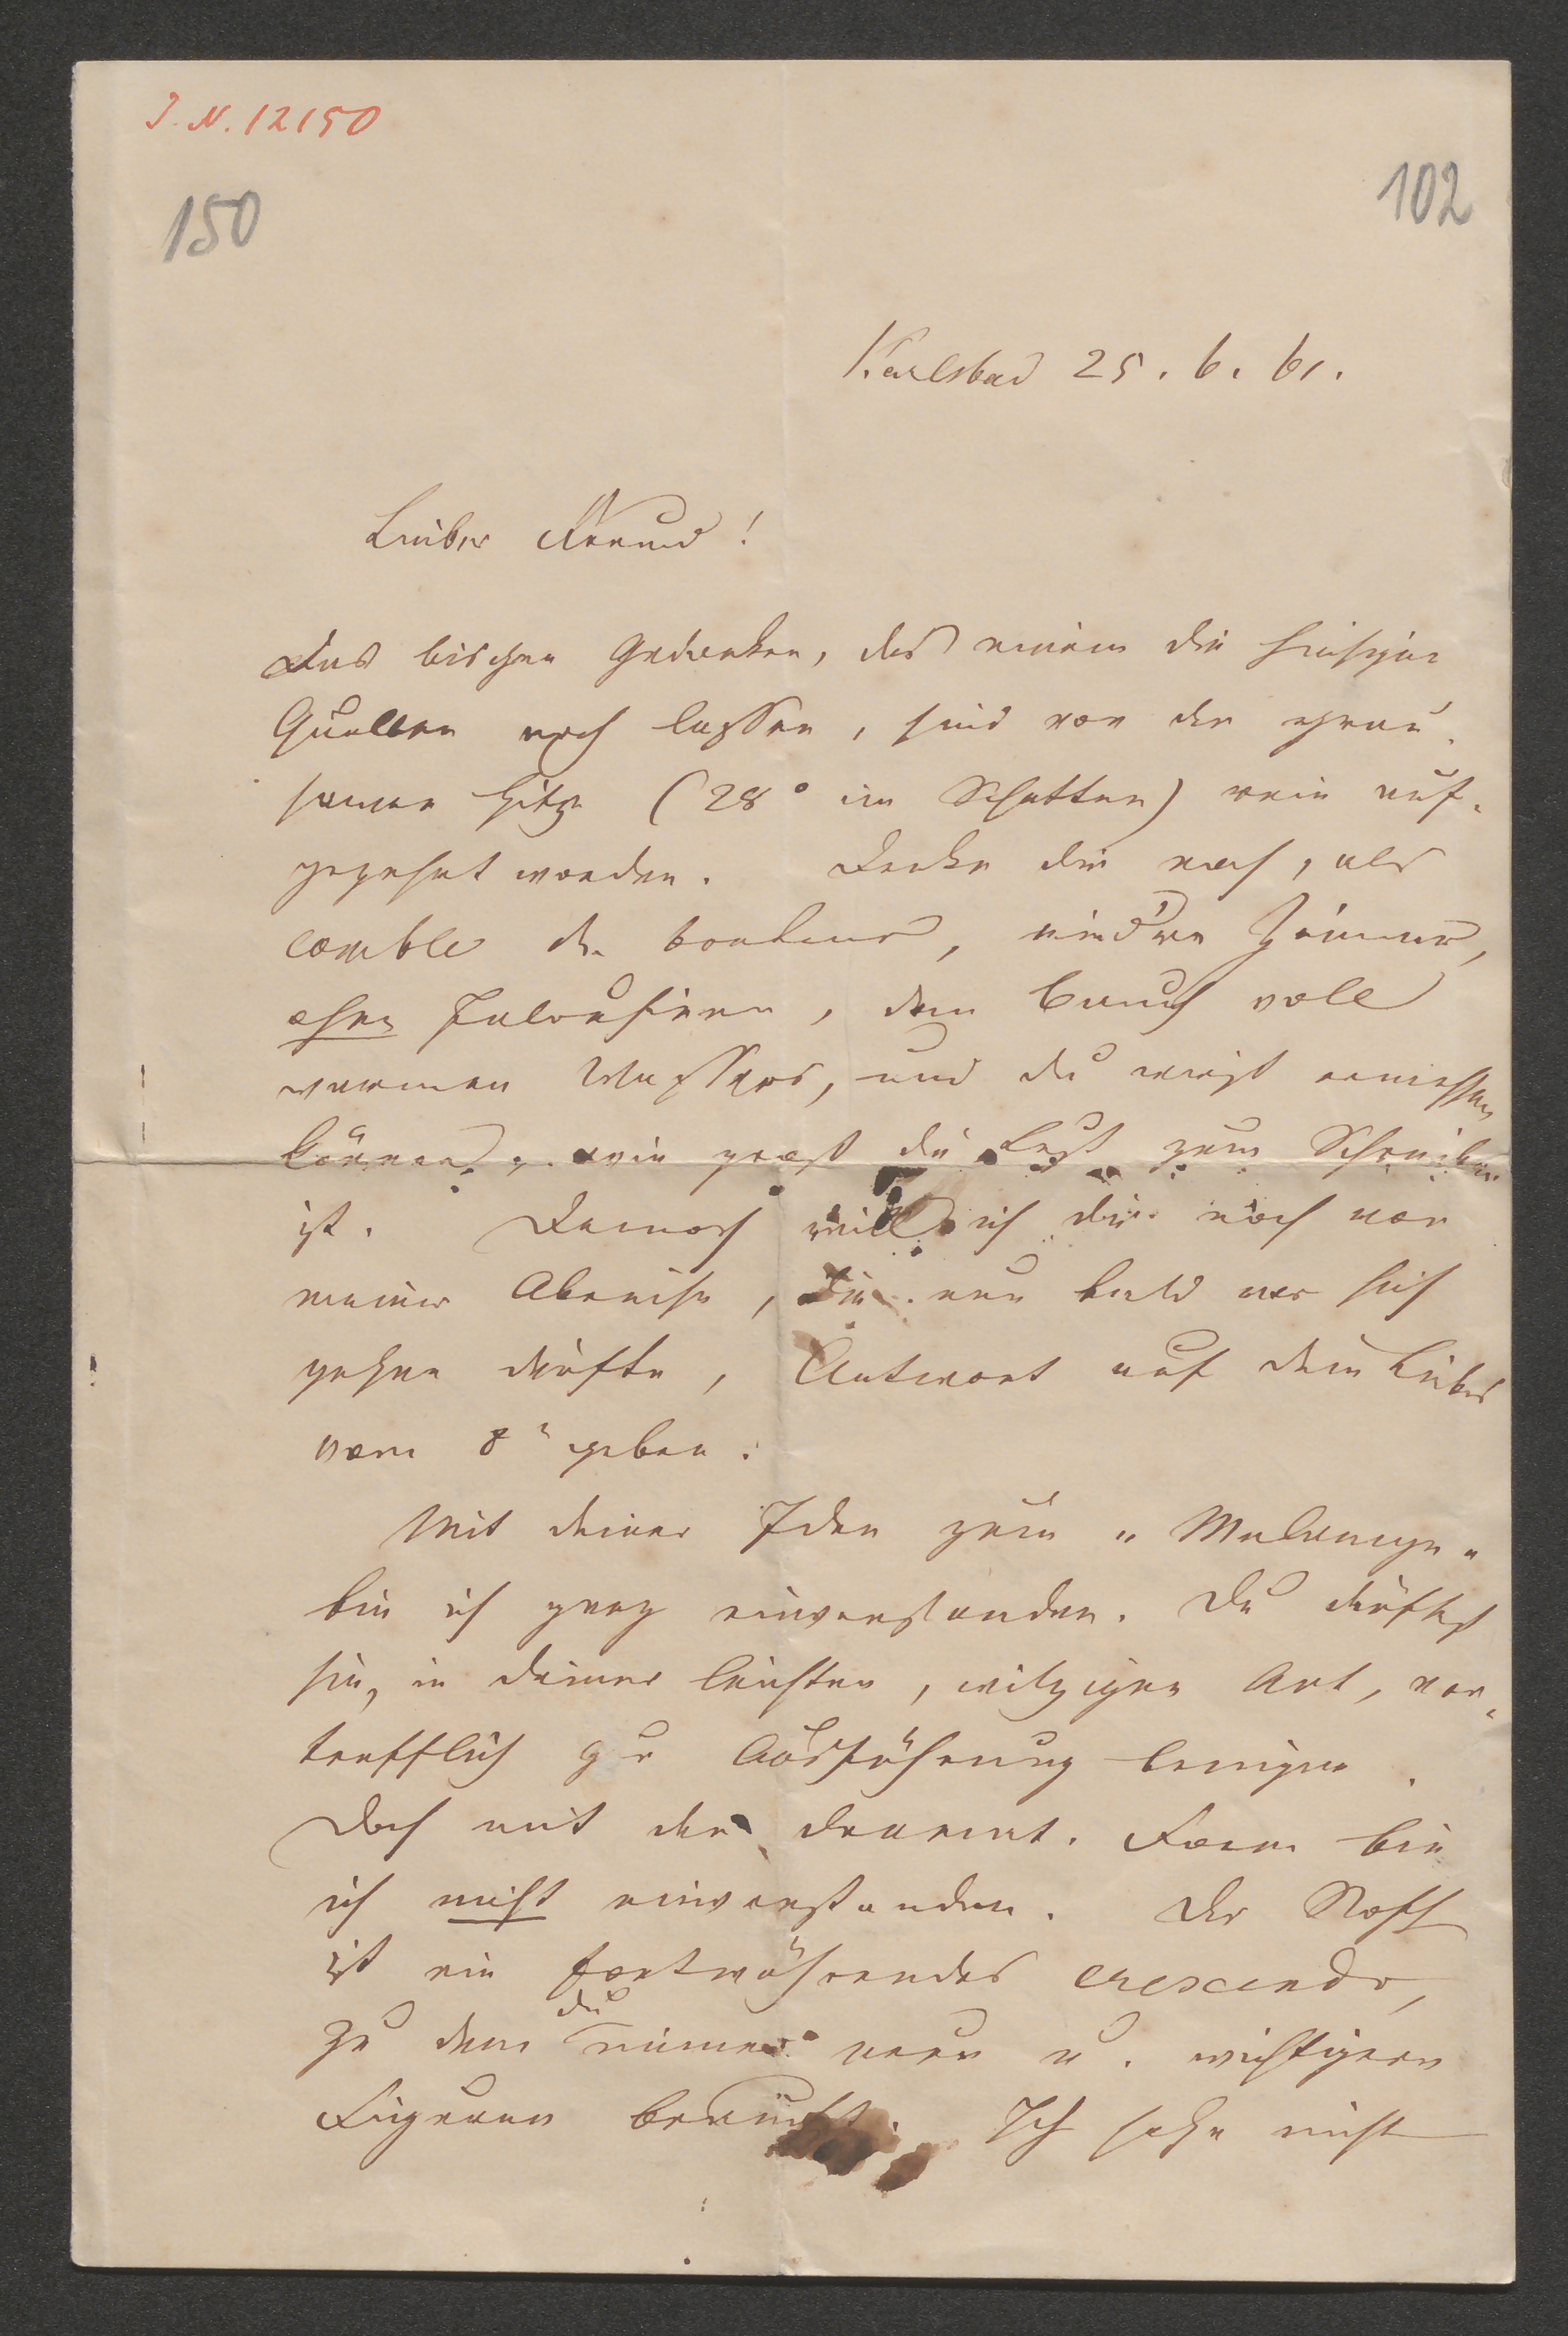 J. N. 12150
150
102
Karlsbad 25. 6. 61.
Lieber Freund!
Das bischen Gedanken, das einem die hiesigen
Quellen noch lassen, sind von der grau-
samen Hitze (28° im Schatten) rein auf-
gezehrt worden. Denke dir noch, als
comble de bonheur, niedre Zimmer,
ohne Jalousieen, den Bauch voll
warmen Wassers, und du wirst ermessen
können, wie groß die Lust zum Schreiben
ist. Dennoch will ich dir noch vor
meiner Abreise, die nun bald vor sich
gehen dürfte, Antwort auf dein Liebes
vom 8n geben.
Mit deiner Idee zum "Melange"
bin ich ganz einverstanden. Du dürftest
sie, in deiner leichten, witzigen Art, vor-
trefflich zur Ausführung bringen.
Doch mit der dramat. Form bin
ich nicht einverstanden. Der Stoff
ist ein fortwährendes crescendo,
zu dem du immer neue u. wichtigere
Figuren brauchst. Ich sehe nicht